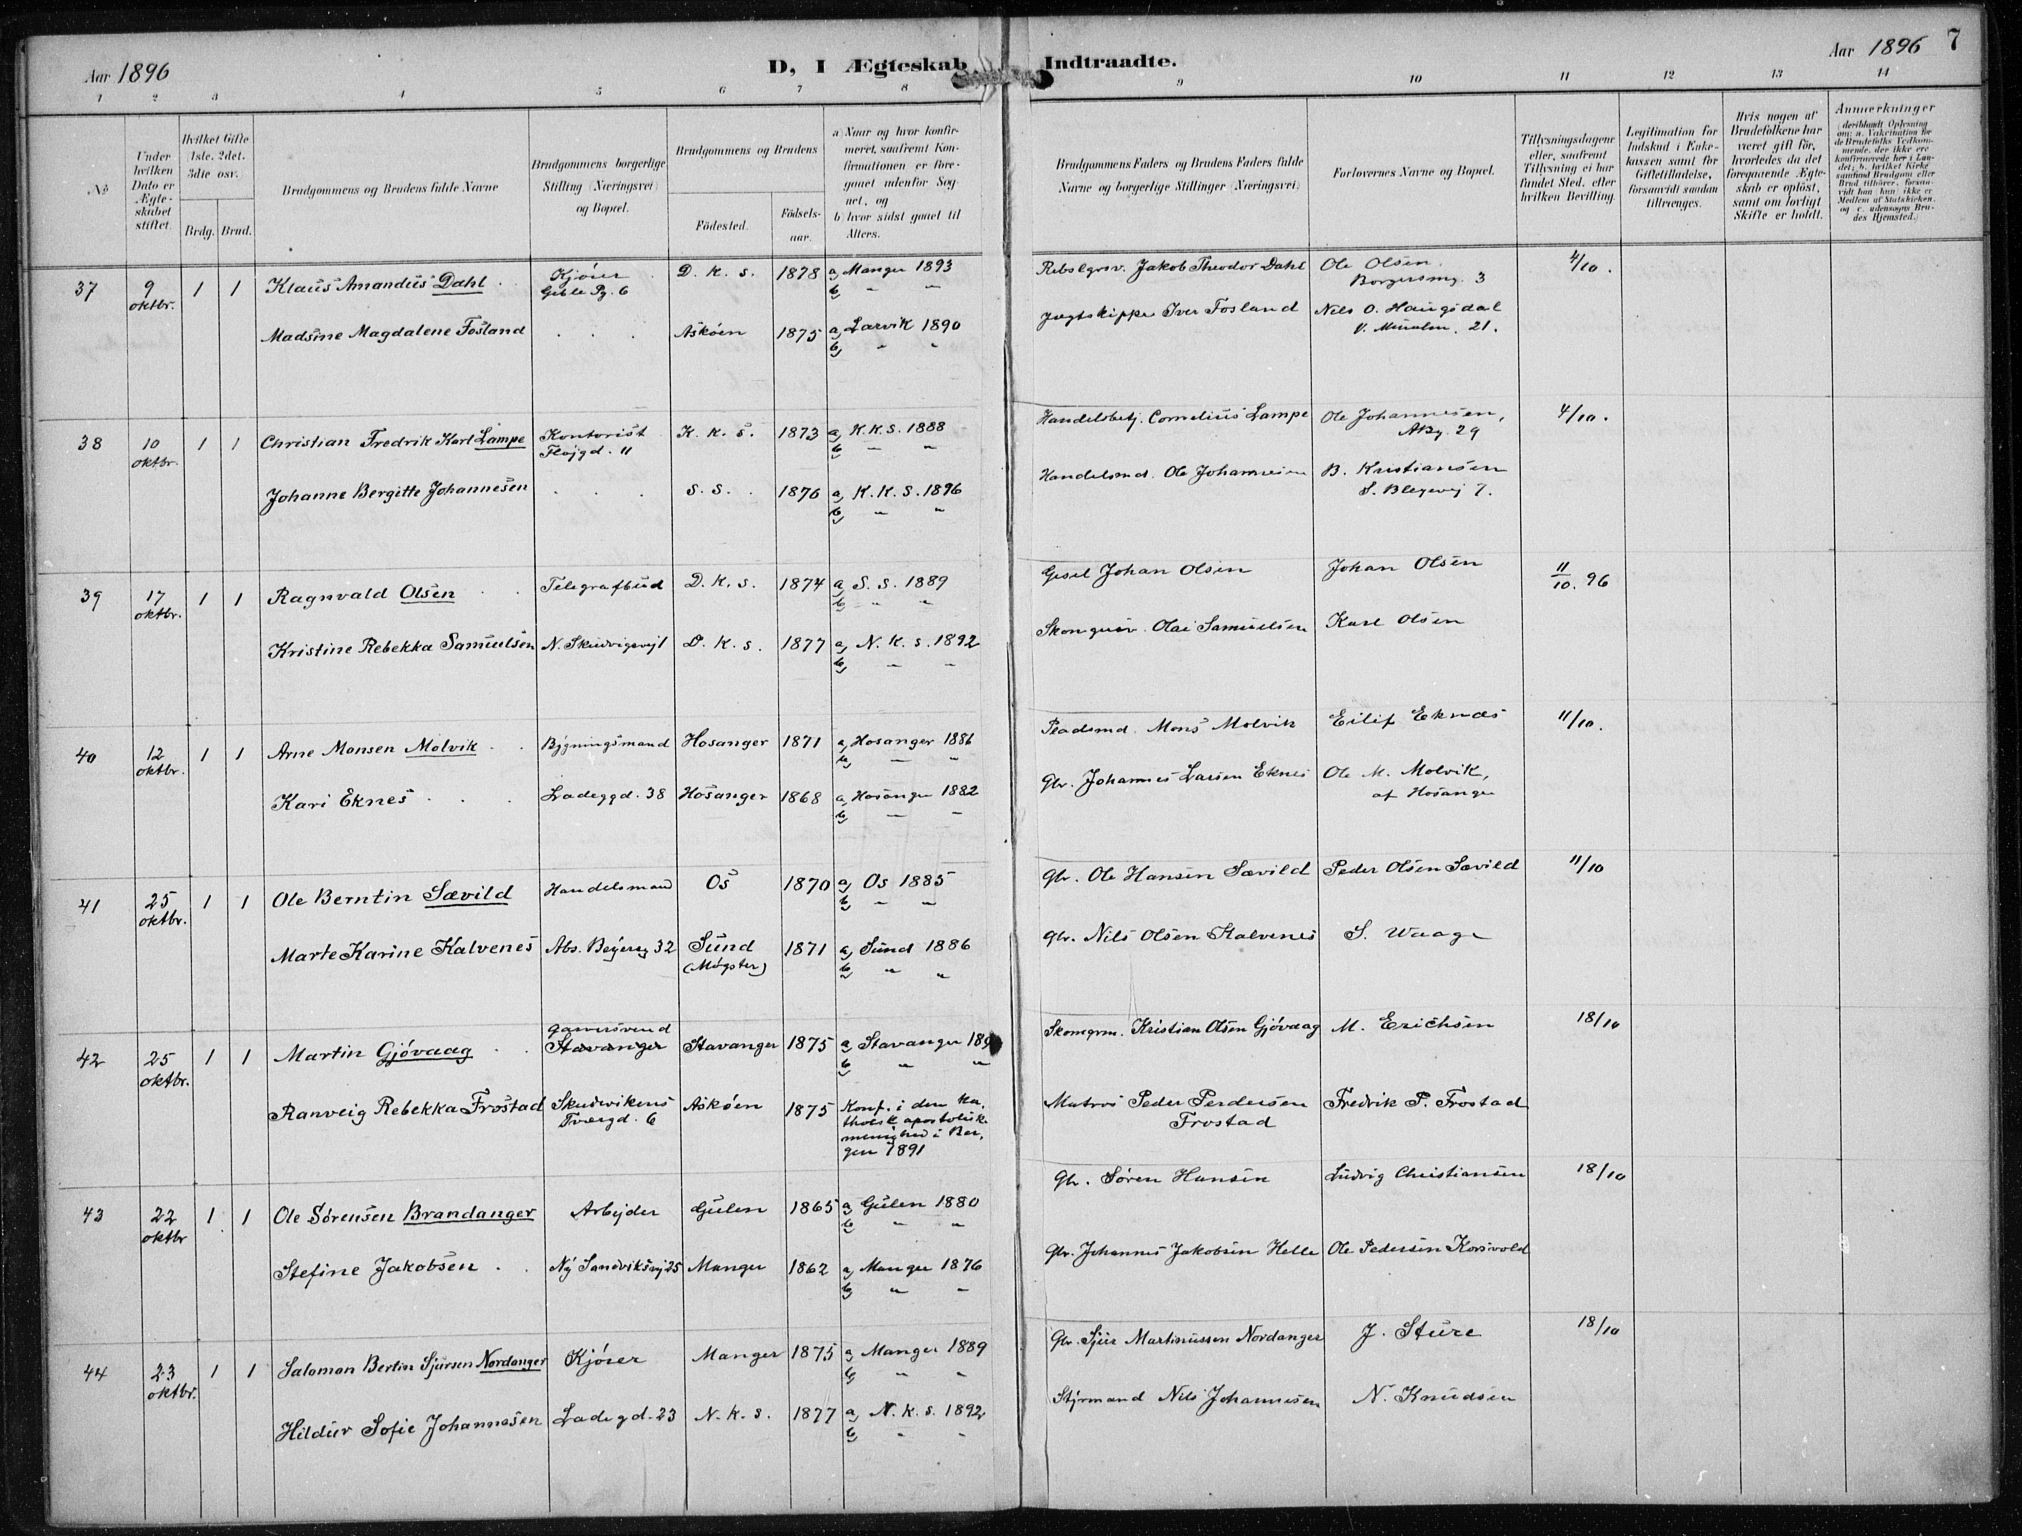 Aar 1896
D, I Ægteskab Indtraadte.
Aar 1896 7
1 2 3 4 5 6 7 8 9 10 11 12 13 14
No
Under hvilken Dato er Ægteskabet stiftet.
Hvilket Gifte 1ste, 2det, 3dte osv.
Brdg. Brud.
Brudgommens og Brudens fulde Navne
Brudgommens borgerlige Stilling (Næringsvei) og Bopæl.
Brudgommens og Brudens
Fødested.
Fødselsaar.
a) Naar og hvor konfirmeret, saafremt Konfirmationen er foregaaet udenfor Sognet, og
b) hvor sidst gaaet til Alters.
Brudgommens Faders og Brudens Faders fulde Navne og borgerlige Stillinger (Næringsvei)
Forlovernes Navne og Bopæl.
Tillysningsdagene eller, saafremt Tillysning ei har fundet Sted, efter hvilken Bevilling.
Legitimation for Indskud i Enkekassen samt for Giftetilladelse, forsaavidt saadan tiltrænges.
Hvis nogen af Brudefolkene har været gift før, hvorledes da det foregaaende Ægteskab er opløst, samt om lovligt Skifte er holdt.
Anmerkninger
37 9 oktbr. 1 1 Klaus Amandus Dahl Kjører D. K. S. 1878 a, Manger 1893 Jakob Theodor Dahl Ole Olsen 4/10.
b, " "
Borgersmg. 3
Madsine Magdalene Fosland . . . Askøen 1875 a, Larvik 1890 Jægtskipper Iver Fosland Nils O. Haugsdal
b, " "
21.
38 10 oktbr. 1 1 Christian Fredrik Karl Lampe Kontorist K. K. S. 1873 a, K.K.S. 1888 Handelsbetj. Cornelius Lampe Ole Johannesen, 4/10.
Fløjgd. 11 b, " "
29
Johanne Bergitte Johannesen . . . S. S. 1876 a, K.K.S. 1896 Handelsmd. Ole Johannesen B. Kristiansen
b, " "
S. Blegevej 7.
39 17 oktbr. 1 1 Ragnvald Olsen Telegrafbud D. K. S. 1874 a, S. S. 1889 Johan Olsen Johan Olsen 11/10. 96
b, " "
Kristine Rebekka Samuelsen N. Skudvigsvj 1 D. K. S. 1877 a, N. K. S. 1892 Olai Samuelsen Karl Olsen
b, " "
40 12 oktbr. 1 1 Arne Monsen Molvik Bygningsmand Hosanger 1871 a, Hosanger 1886 Pladsmd. Mons Molvik Eilif Eknæs 11/10.
b, " "
Kari Eknes Ladeggd. 38 Hosanger 1868 a, Hosanger 1882 Gbr. Johannes Larsen Eknes Ole M. Molvik,
b, " "
af Hosanger
41 25 oktbr. 1 1 Ole Berntin Sævild Handelsmand Os 1870 a, Os 1885 Gbr. Ole Hansen Sævild Peder Olsen Sævild 11/10
b, " "
Marte Karine Kalvenes Abs. Beyersg 32 Sund 1871 a, Sund 1886 Gbr. Nils Olsen Kalvenes S. Waage
(Møgster) b, " "
42 25 oktbr. 1 1 Martin Gjøvaag Garversvend Stavanger Stavanger 1875 a, Stavanger 189 Skomgrm. Kristian Olsen Gjøvaag M. Erichsen 18/10
b, " "
Ranveig Rebekka Frostad Skudvikens Tvergd. 6 Askøen 1875 Konf. i den katholsk apostolisk menighed i Bergen 1891 Matros Peder Perdersen Frostad Fredrik P. Frostad
43 22 oktbr 1 1 Ole Sørensen Brandanger Arbejder Gulen 1865 a, Gulen 1880 Gbr. Søren Hansen Ludvig Christiansen 18/10
b, " "
Stefine Jakobsen Ny Sandviksvj 25 Manger 1862 a, Manger 1876 Gbr. Johannes Jakobsen Helle Ole Pedersen Korsvold
b, " "
44 23 oktbr. 1 1 Salomon Bertin Sjursen Nordanger Kjører Manger 1875 a, Manger 1889 Gbr. Sjur Martinussen Nordanger J. Sture 18/10
b, " "
Hildur Sofie Johannesen Ladegd. 23 N. K. S. 1877 a, N. K. S. 1892 Styrmand Nils Johannesen N. Knudsen
b, " "